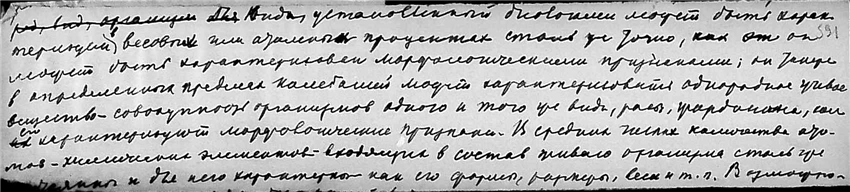 род, вид, организм Для вида, установленный биологами может быть харак
теризуем в весовых или атомных процентах столь же точно, как он 591
может быть характеризован морфологическими признаками; он также
в определенных пределах колебаний может характеризоваться однородное живое
вещество - совокупность организмов одного и того же вида, расы, жорданона, как
их характеризуют морфологические признаки. И средних числах количества ато-
мов - химических элементов - входящих в состав живого организма столь же
и для него характерны как его формы, размеры, вес и т. п. Возможно-